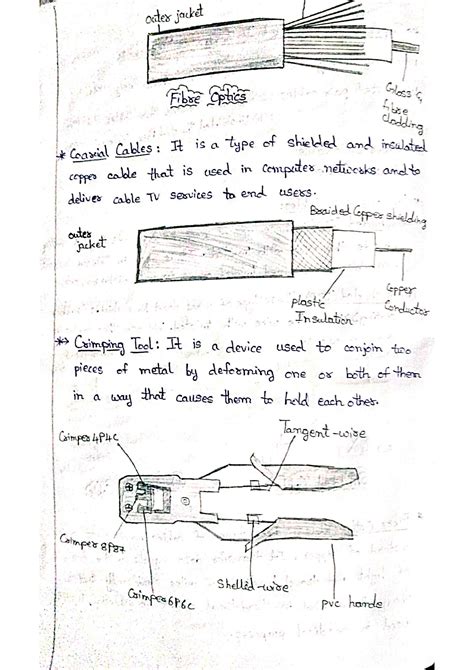 outer jacket
Glass &
fibre
cladding
Fibre Optics
* Coaxial Cables: It is a type of shielded and insulated
copper cable that is used in computer networks and to
deliver cable TV services to end users.
Braided Copper shielding
outer
jacket
Copper
Conductor
plastic
Insulation
* Crimping Tool: It is a device used to conjoin two
pieces of metal by deforming one or both of them
in a way that causes them to hold each other.
Crimper 4P4C
Tangent-wire
Crimper 8P8
Shellid-wire
Crimper 6P6C
pvc hande